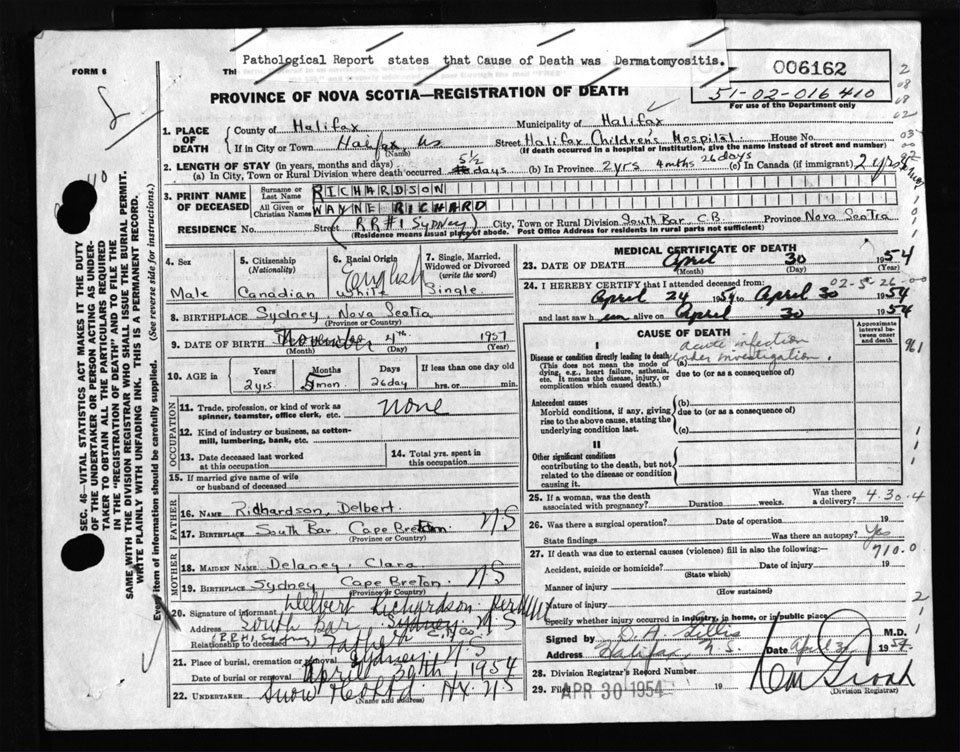 Pathological Report states that Cause of Death was Dermatomyositis.
FORM 6
Thi
006162
51-02-016410
For use of the Department only
PROVINCE OF NOVA SCOTIA—REGISTRATION OF DEATH
1. PLACE OF DEATH
County of Halifax Municipality of Halifax
If in City or Town Halifax NS (Name) Street Halifax Children's Hospital. House No.
(If death occurred in a hospital or institution, give the name instead of street and number)
2. LENGTH OF STAY (in years, months and days)
(a) In City, Town or Rural Division where death occurred 5 1/2 days (b) In Province 2 yrs 4 mths 26 days (c) In Canada (if immigrant) 2 yrs
3. PRINT NAME OF DECEASED
Surname or Last Name RICHARDSON
All Given or Christian Names WAYNE RICHARD
RESIDENCE No. Street (RR#1 Sydney) City, Town or Rural Division South Bar C.B. Province Nova Scotia
(Residence means usual place of abode. Post Office Address for residents in rural parts not sufficient)
4. Sex
Male
5. Citizenship (Nationality)
Canadian
6. Racial Origin
English
White
7. Single, Married, Widowed or Divorced (write the word)
Single
8. BIRTHPLACE Sydney, Nova Scotia
(Province or Country)
9. DATE OF BIRTH November 4th 1951
(Month) (Day) (Year)
10. AGE in
Years Months Days If less than one day old
2 yrs. 5 mon 26 day hrs. or min.
OCCUPATION
11. Trade, profession, or kind of work as spinner, teamster, office clerk, etc. none
12. Kind of industry or business, as cotton-mill, lumbering, bank, etc.
13. Date deceased last worked at this occupation
14. Total yrs. spent in this occupation
15. If married give name of wife or husband of deceased
FATHER
16. NAME Richardson, Delbert
17. BIRTHPLACE South Bar Cape Breton. NS
(Province or Country)
MOTHER
18. MAIDEN NAME Delaney, Clara
19. BIRTHPLACE Sydney Cape Breton. NS
(Province or Country)
20. Signature of informant Delbert Richardson
Address South Bar Sydney N.S
(R.R#1, Sydney) C.B. Co.
Relationship to deceased Father
21. Place of burial, cremation or removal Sydney N S
Date of burial or removal April 30th 1954
22. UNDERTAKER Snow & Co Ltd. Hx. NS
(Name and address)
MEDICAL CERTIFICATE OF DEATH
23. DATE OF DEATH April 30 1954
(Month) (Day) (Year)
24. I HEREBY CERTIFY that I attended deceased from: 02-5-26-00
April 24 1954 to April 30 1954
and last saw him alive on April 30 1954
CAUSE OF DEATH
Approximate interval between onset and death
I
Disease or condition directly leading to death (a) acute infection under investigation.
(This does not mean the mode of dying, e.g., heart failure, asthenia, etc. It means the disease, injury, or complication which caused death.)
due to (or as a consequence of)
Antecedent causes
Morbid conditions, if any, giving rise to the above cause, stating the underlying condition last.
(b)
due to (or as a consequence of)
(c)
II
Other significant conditions
contributing to the death, but not related to the disease or condition causing it.
25. If a woman, was the death associated with pregnancy? Duration weeks. Was there a delivery? 4.30.4
26. Was there a surgical operation? Date of operation 19
State findings Was there an autopsy? Yes
27. If death was due to external causes (violence) fill in also the following:— 710.0
Accident, suicide or homicide? Date of injury 19
(State which)
Manner of injury
(How sustained)
Nature of injury
Specify whether injury occurred in industry, in home, or in public place
Signed by D.A. Gillis M.D.
Address Halifax, N.S. Date April 1954
28. Division Registrar's Record Number
29. Filed APR 30 1954 19
(Division Registrar)
SEC. 46—VITAL STATISTICS ACT MAKES IT THE DUTY
OF THE UNDERTAKER OR PERSON ACTING AS UNDERTAKER TO OBTAIN ALL THE PARTICULARS REQUIRED
IN THE "REGISTRATION OF DEATH" AND TO FILE THE
SAME WITH THE DIVISION REGISTRAR WHO SHALL ISSUE THE BURIAL PERMIT.
WRITE PLAINLY WITH UNFADING INK. THIS IS A PERMANENT RECORD.
Every item of information should be carefully supplied. (See reverse side for instructions.)